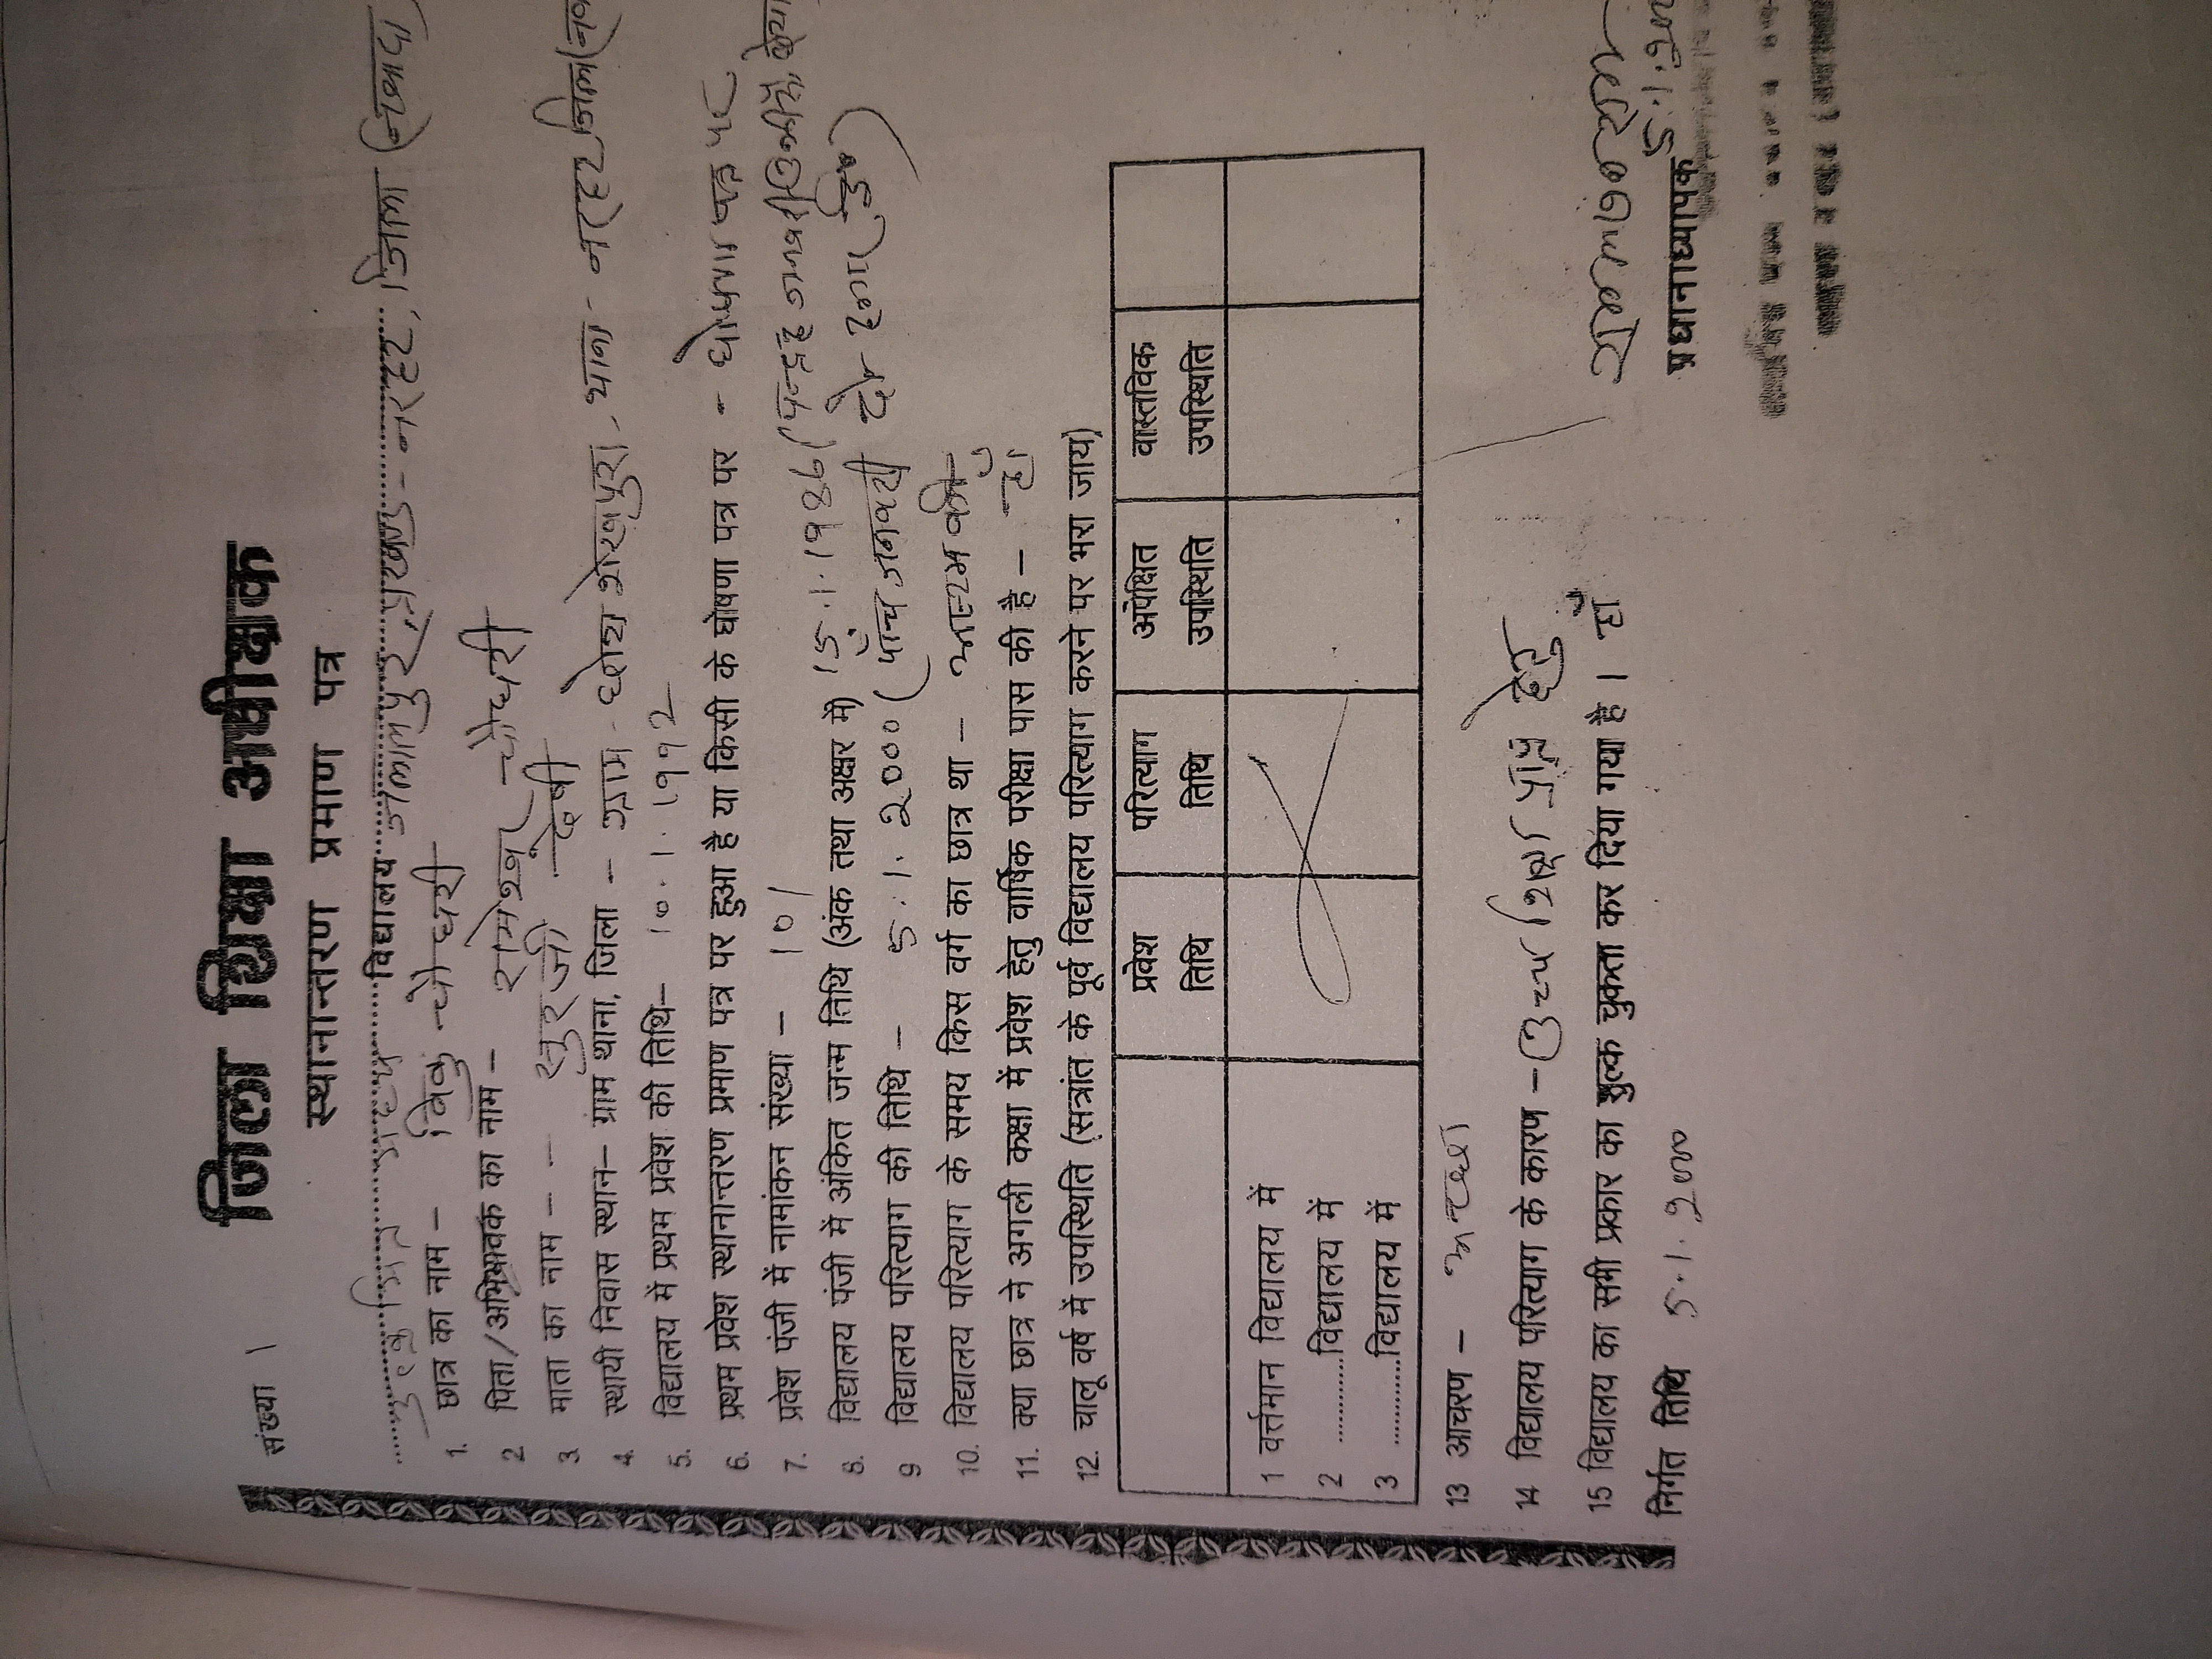 संख्या 1
जिला शिक्षा अधीक्षक
स्थानान्तरण प्रमाण पत्र
विद्यालय जलालपुर प्रखण्ड - नरहट जिला (नवादा)
1. छात्र का नाम - चौधरी
2 पिता/अभिभावक का नाम - चौधरी
3 माता का नाम - - देवी
4. स्थायी निवास स्थान– ग्राम थाना, जिला - ग्राम - शेखपुरा - थाना - नरहट जिला
5. विद्यालय में प्रथम प्रवेश की तिथि– 10.1.1992
6. प्रथम प्रवेश स्थानान्तरण प्रमाण पत्र पर हुआ है या किसी के घोषणा पत्र पर - घोषणा पत्र पर
7. प्रवेश पंजी में नामांकन संख्या - 101
8. विद्यालय पंजी में अंकित जन्म तिथि (अंक तथा अक्षर में) 15.1.1986 (पन्द्रह जनवरी
9 विद्यालय परित्याग की तिथि - 5.1.2000 (पांच जनवरी दो हजार ई०)
10. विद्यालय परित्याग के समय किस वर्ग का छात्र था -
11. क्या छात्र ने अगली कक्षा में प्रवेश हेतु वार्षिक परीक्षा पास की है - हां
12. चालू वर्ष में उपस्थिति (सत्रांत के पूर्व विद्यालय परित्याग करने पर भरा जाय)
प्रवेश तिथि परित्याग तिथि अपेक्षित उपस्थिति वास्तविक उपस्थिति
1 वर्त्तमान विद्यालय में
2 ............विद्यालय में
3 ............विद्यालय में
13 आचरण - अच्छा
14 विद्यालय परित्याग के कारण - उच्च शिक्षा प्राप्ति हेतु
15 विद्यालय का सभी प्रकार का शुल्क चुकता कर दिया गया है । हां
निर्गत तिथि 5.1.2000
प्रधानाध्यापक